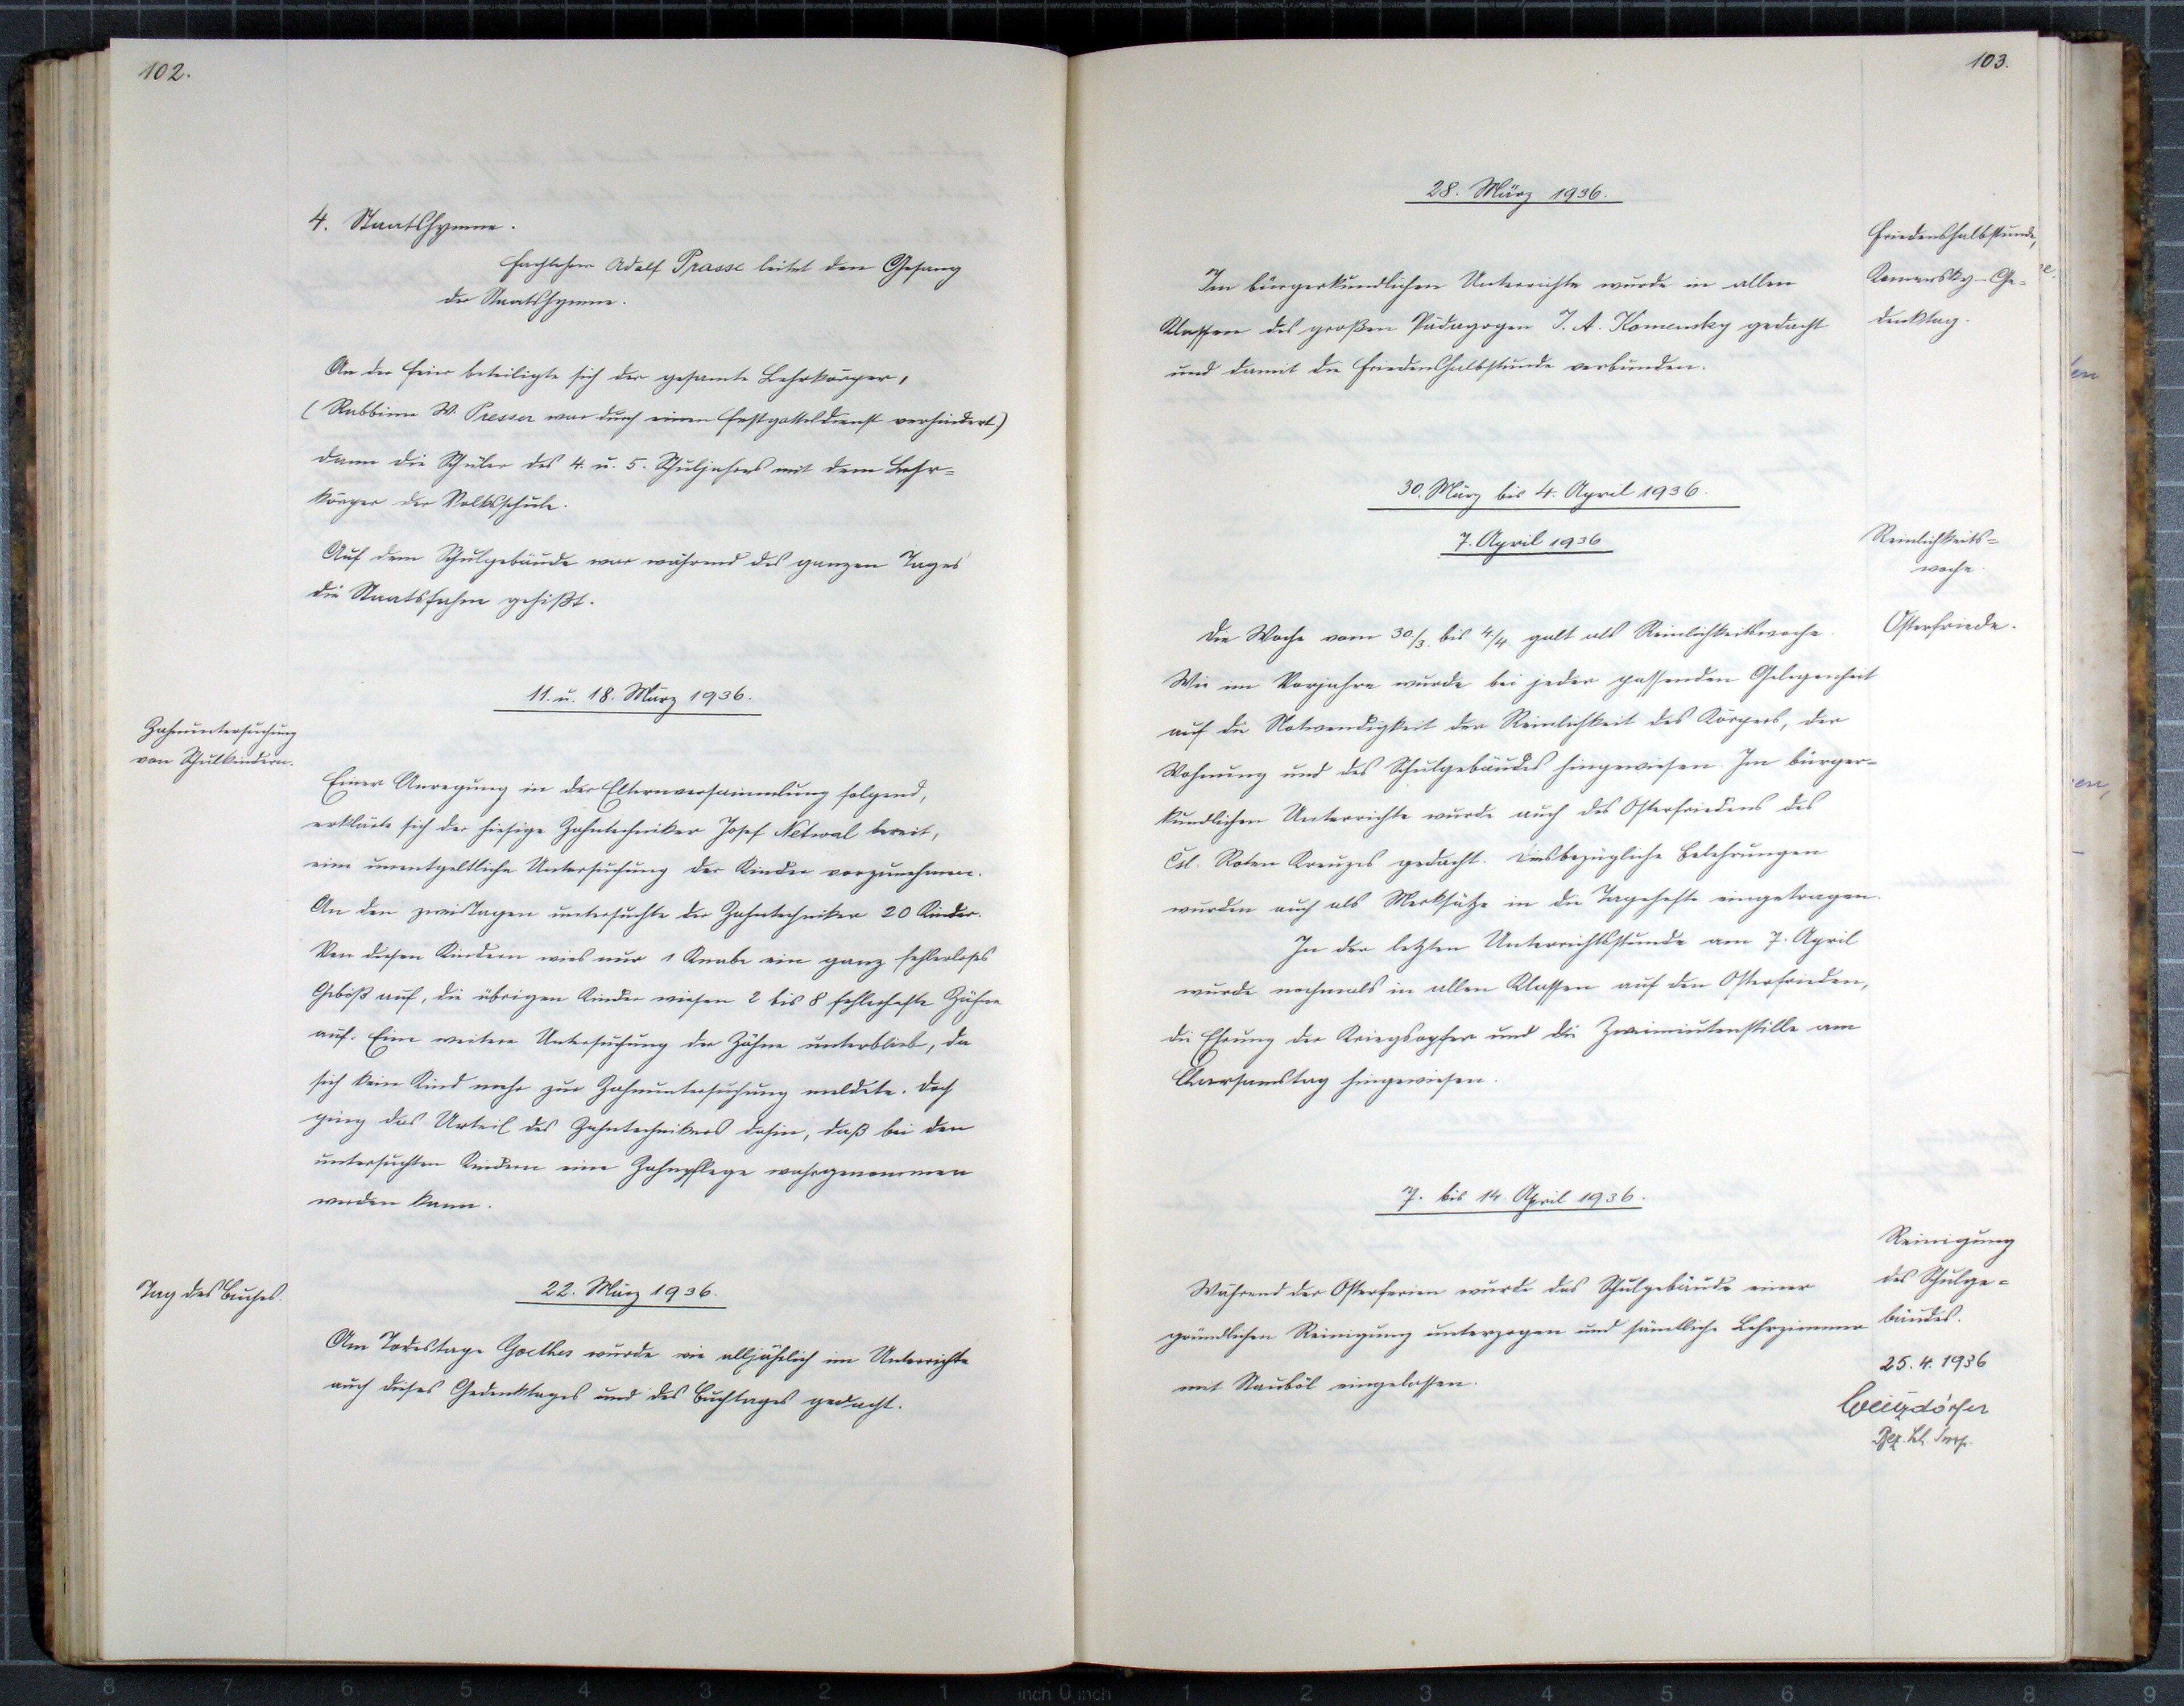 102.
4. Staatshymne.
Fachlehrer Adolf Prasse leitet den Gesang
der Staatshymne.
An der Feier beteiligte sich der gesamte Lehrkörper,
(Rabbiner W. Presser war durch einen Festgottesdienst verhindert)
dann die Schüler des 4. u. 5. Schuljahres mit dem Lehr=
körper der Volksschule.
Auf dem Schulgebäude war während des ganzen Tages
die Staatsfahne gehißt.
11. u. 18. März 1936.
Zahnuntersuchung
von Schulkindern.
Einer Anregung in der Elternversammlung folgend,
erklärte sich der hiesige Zahntechniker Josef Netwal bereit,
eine unentgeltliche Untersuchung der Kinder vorzunehmen.
An den zwei Tagen untersuchte der Zahntechniker 20 Kinder.
Von diesen Kindern wies nur 1 Knabe ein ganz fehlerloses
Gebiß auf, die übrigen Kinder wiesen 2 bis 8 fehlerhafte Zähne
auf. Eine weitere Untersuchung der Zähne unterblieb, da
sich kein Kind mehr zur Zahnuntersuchung meldete. Doch
ging das Urteil des Zahntechnikers dahin, daß bei den
untersuchten Kindern eine Zahnpflege wahrgenommen
werden kann.
Tag des Buches.
22. März 1936.
Am Todestage Goethes wurde wie alljährlich im Unterrichte
auch dieses Gedenktages und des Buchtages gedacht.
103.
28. März 1936.
Friedenshalbstunde,
Komensky-Ge=
denktag.
Im bürgerkundlichen Unterrichte wurde in allen
Klassen des großen Pädagogen J. A. Komensky gedacht
und damit die Friedenshalbstunde verbunden.
30. März bis 4. April 1936.
7. April 1936
Reinlichkeits=
woche.
Osterfriede.
Die Woche vom 30./3. bis 4/4. galt als Reinlichkeitswoche.
Wie im Vorjahre wurde bei jeder passenden Gelegenheit
auf die Notwendigkeit der Reinlichkeit des Körpers, der
Wohnung und des Schulgebäudes hingewiesen. Im bürger=
kundlichen Unterrichte wurde auch des Osterfriedens des
Čsl. Roten Kreuzes gedacht. Diesbezügliche Belehrungen
wurden auch als Merksätze in die Tagehefte eingetragen.
In der letzten Unterrichtsstunde am 7. April
wurde nochmals in allen Klassen auf den Osterfrieden,
die Ehrung der Kriegsopfer und die Zweiminutenstille am
Charsamstag hingewiesen.
7. bis 14. April 1936.
Reinigung
des Schulge=
bäudes.
Während der Osterferien wurde das Schulgebäude einer
gründlichen Reinigung unterzogen und sämtliche Lehrzimmer
mit Stauböl eingelassen.
25. 4. 1936
Bez. Sch. Insp.